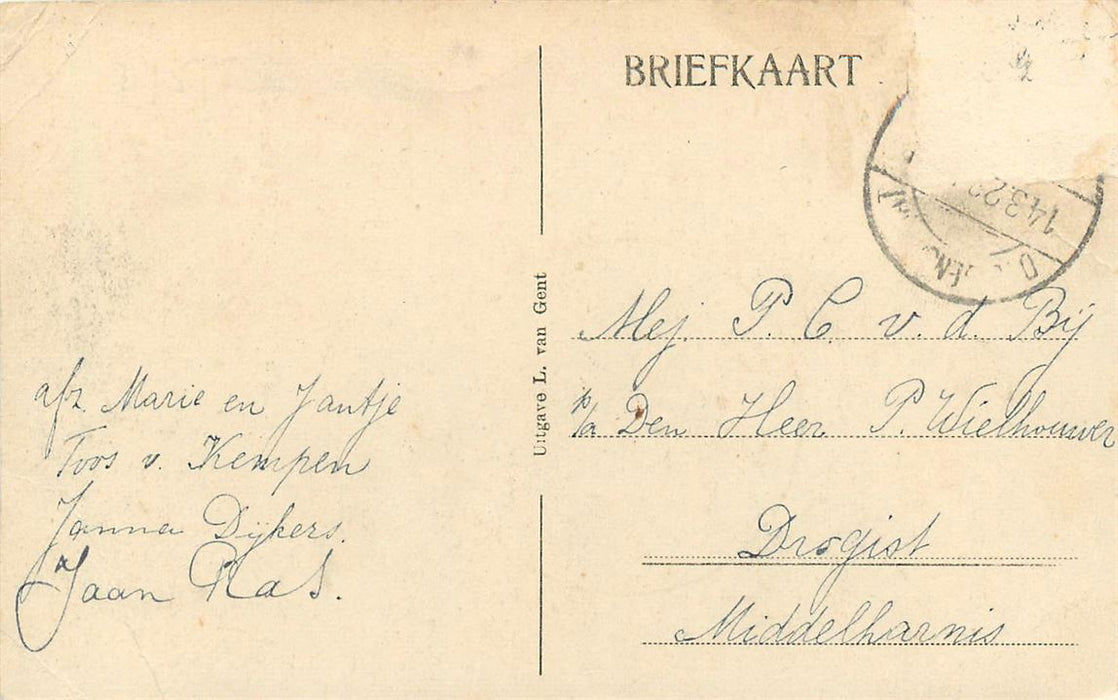 BRIEFKAART
14.3.2
Mej. P. C. v. d. Bij
p/a Den Heer P. Wielhouwer
Drogist
Middelharnis
Uitgave L. van Gent
afz. Marie en Jantje
Toos v. Kempen
Janna Dijkers.
Jaan Ras.